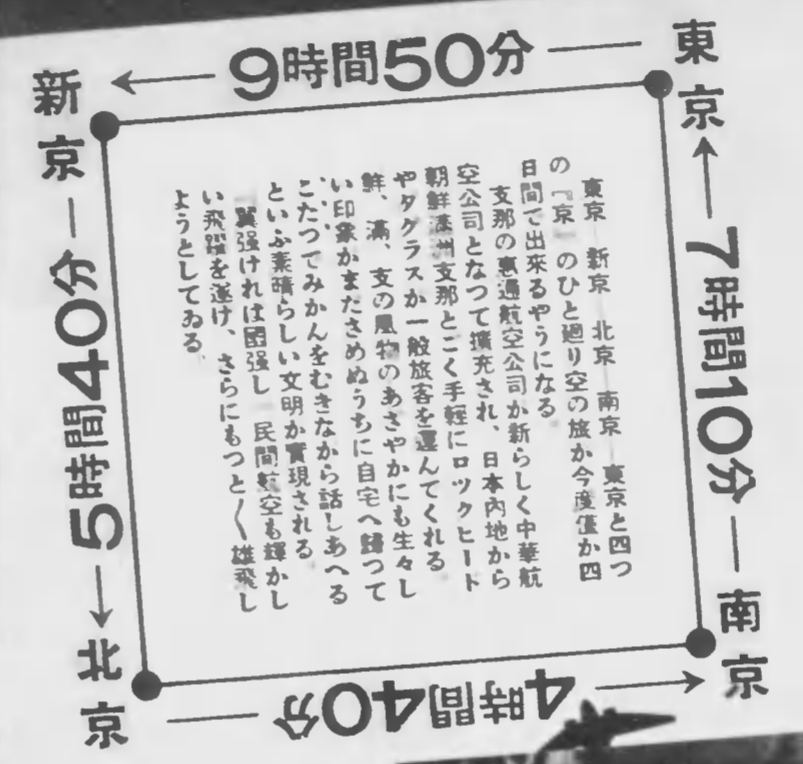 東京
9時間50分
新京
5時間40分
北京
4時間40分
南京
7時間10分
東京―新京―北京―南京―東京と四つ
の『京』のひと廻り空の旅が今度僅か四
日間で出来るやうになる
支那の惠通航空公司が新らしく中華航
空公司となつて擴充され、日本内地から
朝鮮滿洲支那とごく手軽にロツクヒード
やダグラスが一般旅客を運んでくれる
鮮、滿、支の風物のあざやかにも生々し
い印象がまださめぬうちに自宅へ歸つて
こたつでみかんをむきながら話しあへる
といふ素晴らしい文明が實現される
『翼强ければ國强し』民間航空も輝かし
い飛躍を遂げ、さらにもつと〳〵雄飛し
ようとしてゐる